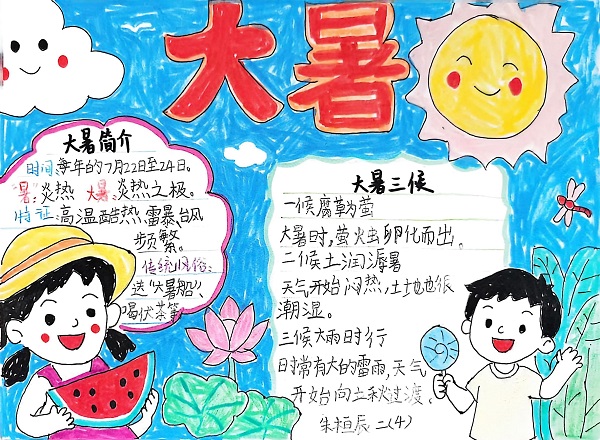 大暑
大暑简介
时间:每年的7月22日至24日。
"暑":炎热 大暑:炎热之极。
特征:高温酷热、雷暴、台风
频繁。
传统风俗:
送"大暑船"、
喝伏茶等
大暑三候
一候腐草为萤
大暑时,萤火虫卵化而出。
二候土润溽暑
天气开始闷热,土地也很
潮湿。
三候大雨时行
时常有大的雷雨,天气
开始向立秋过渡。
朱桓辰 二(4)